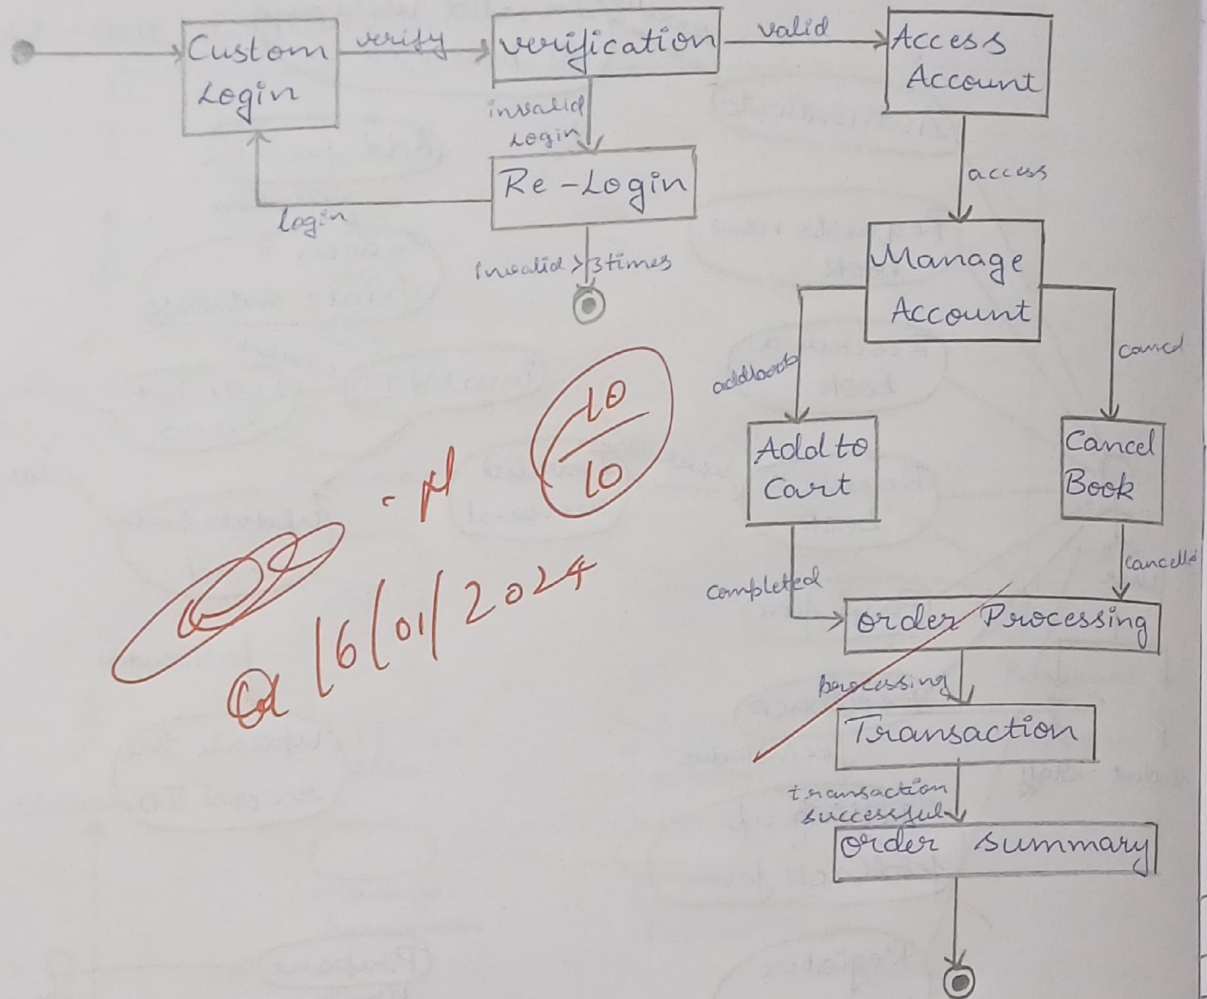 Custom
Login
verify
verification
valid
Access
Account
invalid
Login
Re-Login
Login
Invalid >3times
access
Manage
Account
addbook
cancel
Add to
Cart
Cancel
Book
completed
cancelled
order Processing
processing
Transaction
transaction
successful
order summary
10
10
16/01/2024